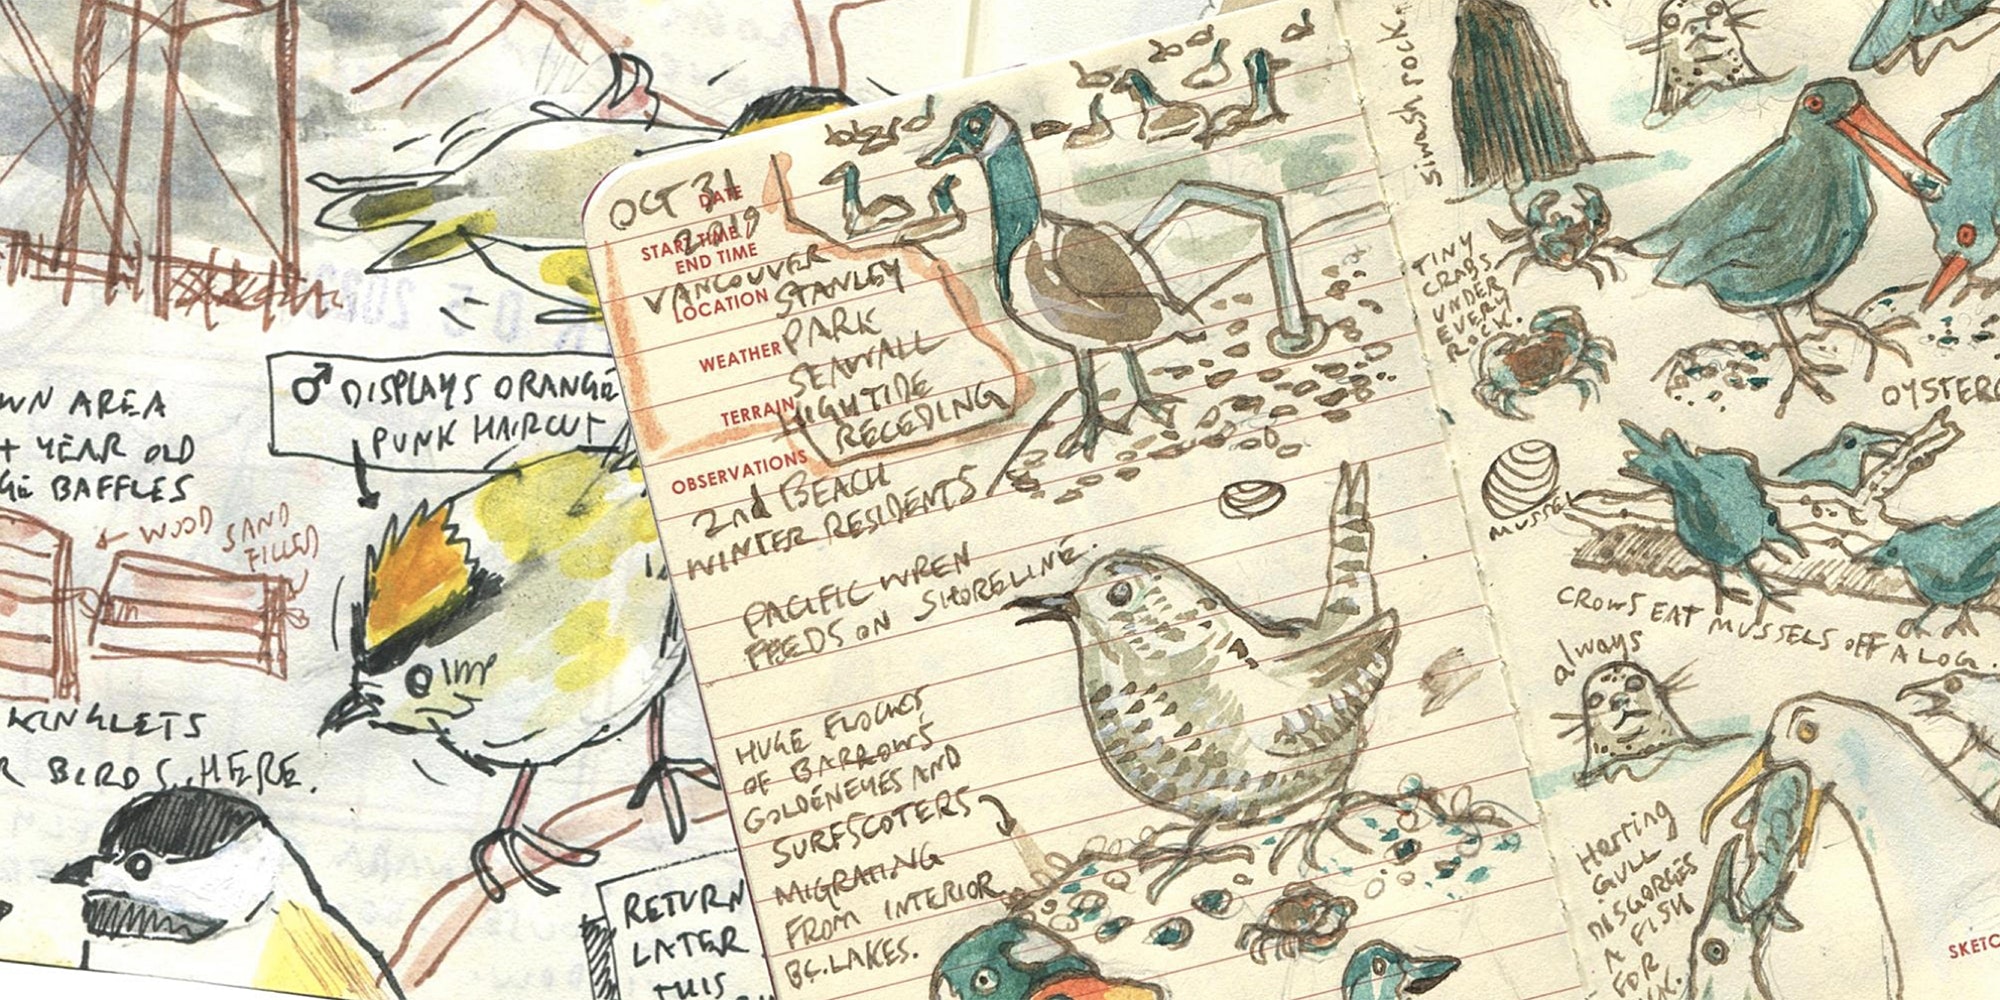 WN AREA
+ YEAR OLD
BAFFLES
← WOOD
SAND
FILLED
KINGLETS
R BIRDS HERE.
♂ DISPLAYS ORANGE
PUNK HAIRCUT
RETURN
LATER
THIS
OCT 31
DATE
2019
START TIME
END TIME
VANCOUVER
LOCATION
STANLEY
PARK
WEATHER
SEAWALL
HIGHTIDE
TERRAIN
RECEDING
OBSERVATIONS
2nd BEACH
WINTER RESIDENTS
PACIFIC WREN
FEEDS ON SHORELINE.
HUGE FLOCKS
OF BARROWS
GOLDENEYES AND
SURFSCOTERS
MIGRATING
FROM INTERIOR
B.C. LAKES.
Siwash rock.
TINY
CRABS
UNDER
EVERY
ROCK.
OYSTERC
MUSSEL
CROWS EAT MUSSELS OFF A LOG.
always
Herring
GULL
DISGORGES
A FISH
FOR
SKETC